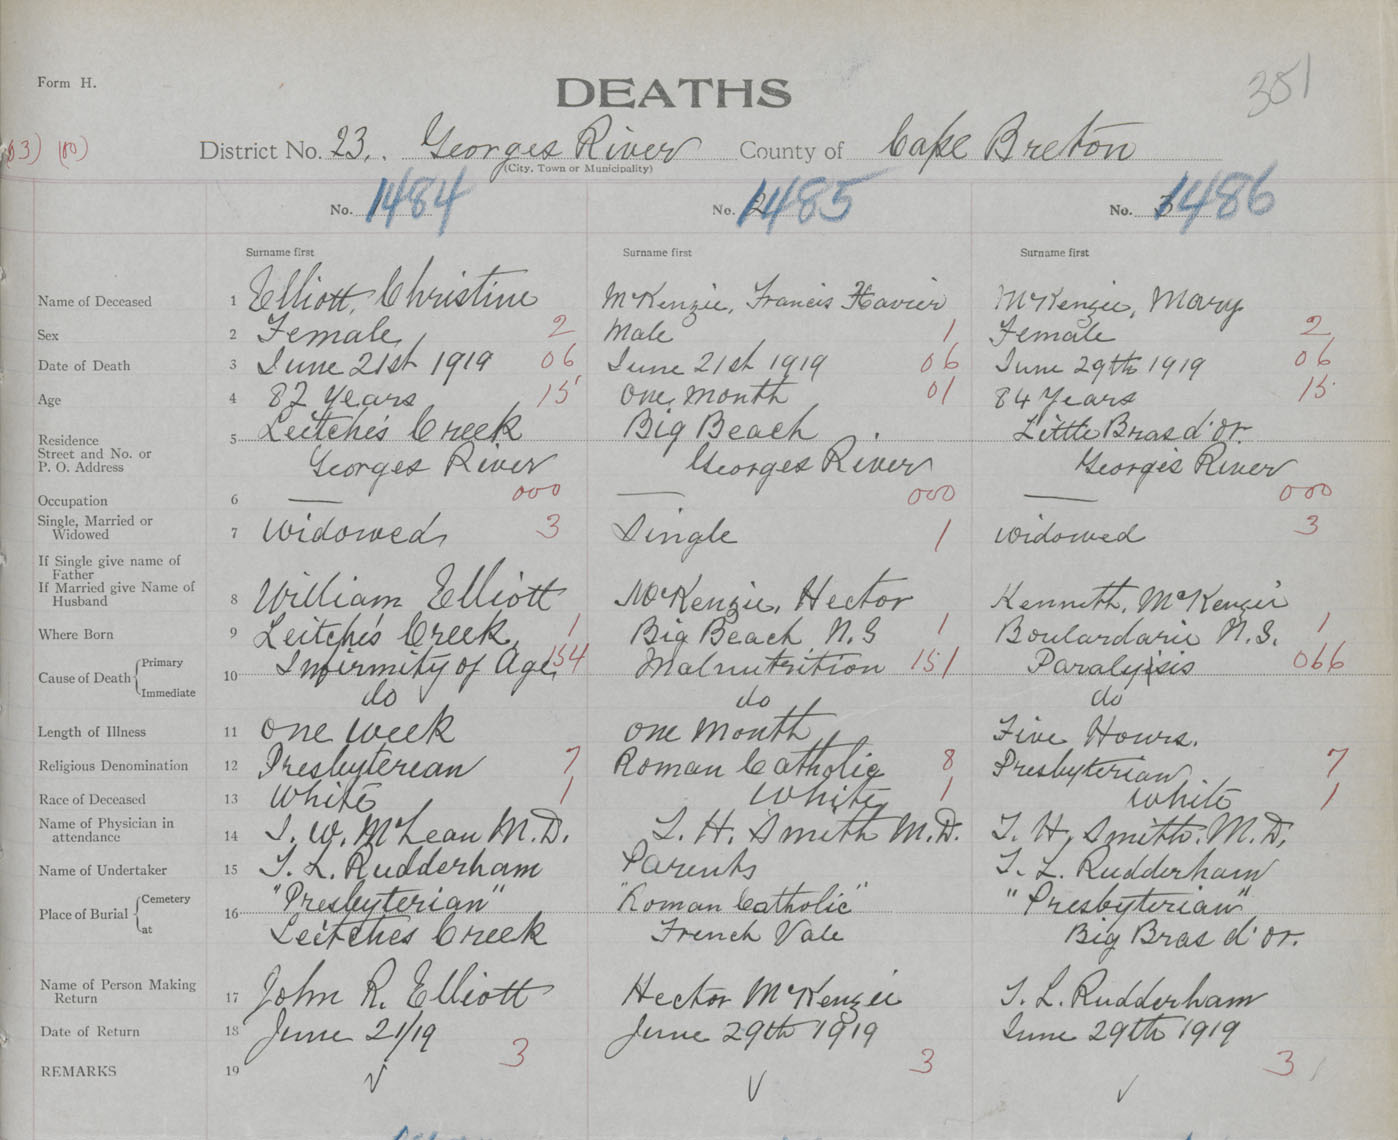 Form H.
DEATHS
381
(10)
District No. 23. Georges River County of Cape Breton
(City, Town or Municipality)
No. 1484 No. 2 1485 No. 3 1486
Surname first Surname first Surname first
Name of Deceased 1 Elliott, Christine McKenzie, Francis Xavier McKenzie, Mary
Sex 2 Female 2 Male 1 Female 2
Date of Death 3 June 21st 1919 06 June 21st 1919 06 June 29th 1919 06
Age 4 82 Years 15 One Month 01 84 Years 15
Residence 5 Leitche's Creek Big Beach Little Bras d'or.
Street and No. or
P. O. Address Georges River Georges River Georges River
Occupation 6 — 000 — 000 — 000
Single, Married or
Widowed 7 Widowed 3 Single 1 Widowed 3
If Single give name of
Father
If Married give Name of
Husband 8 William Elliott McKenzie, Hector Kenneth, McKenzie
Where Born 9 Leitche's Creek, 1 Big Beach N.S 1 Boulardarie N.S. 1
Cause of Death Primary 10 Infirmity of Age, 154 Malnutrition 151 Paralysis 066
Immediate do do do
Length of Illness 11 One week One Month Five Hours.
Religious Denomination 12 Presbyterean 7 Roman Catholic 8 Presbyterian 7
Race of Deceased 13 White 1 White 1 White 1
Name of Physician in
attendance 14 J. W. McLean M.D. L. H. Smith M.D. T. H. Smith. M.D.
Name of Undertaker 15 T. L. Rudderham Parents T. L. Rudderham
Place of Burial Cemetery 16 "Presbyterian" "Roman Catholic" "Presbyterian"
at Leitches Creek French Vale Big Bras d'or.
Name of Person Making
Return 17 John R. Elliott Hector McKenzie T. L. Rudderham
Date of Return 18 June 21/19 June 29th 1919 June 29th 1919
REMARKS 19 3 3 3